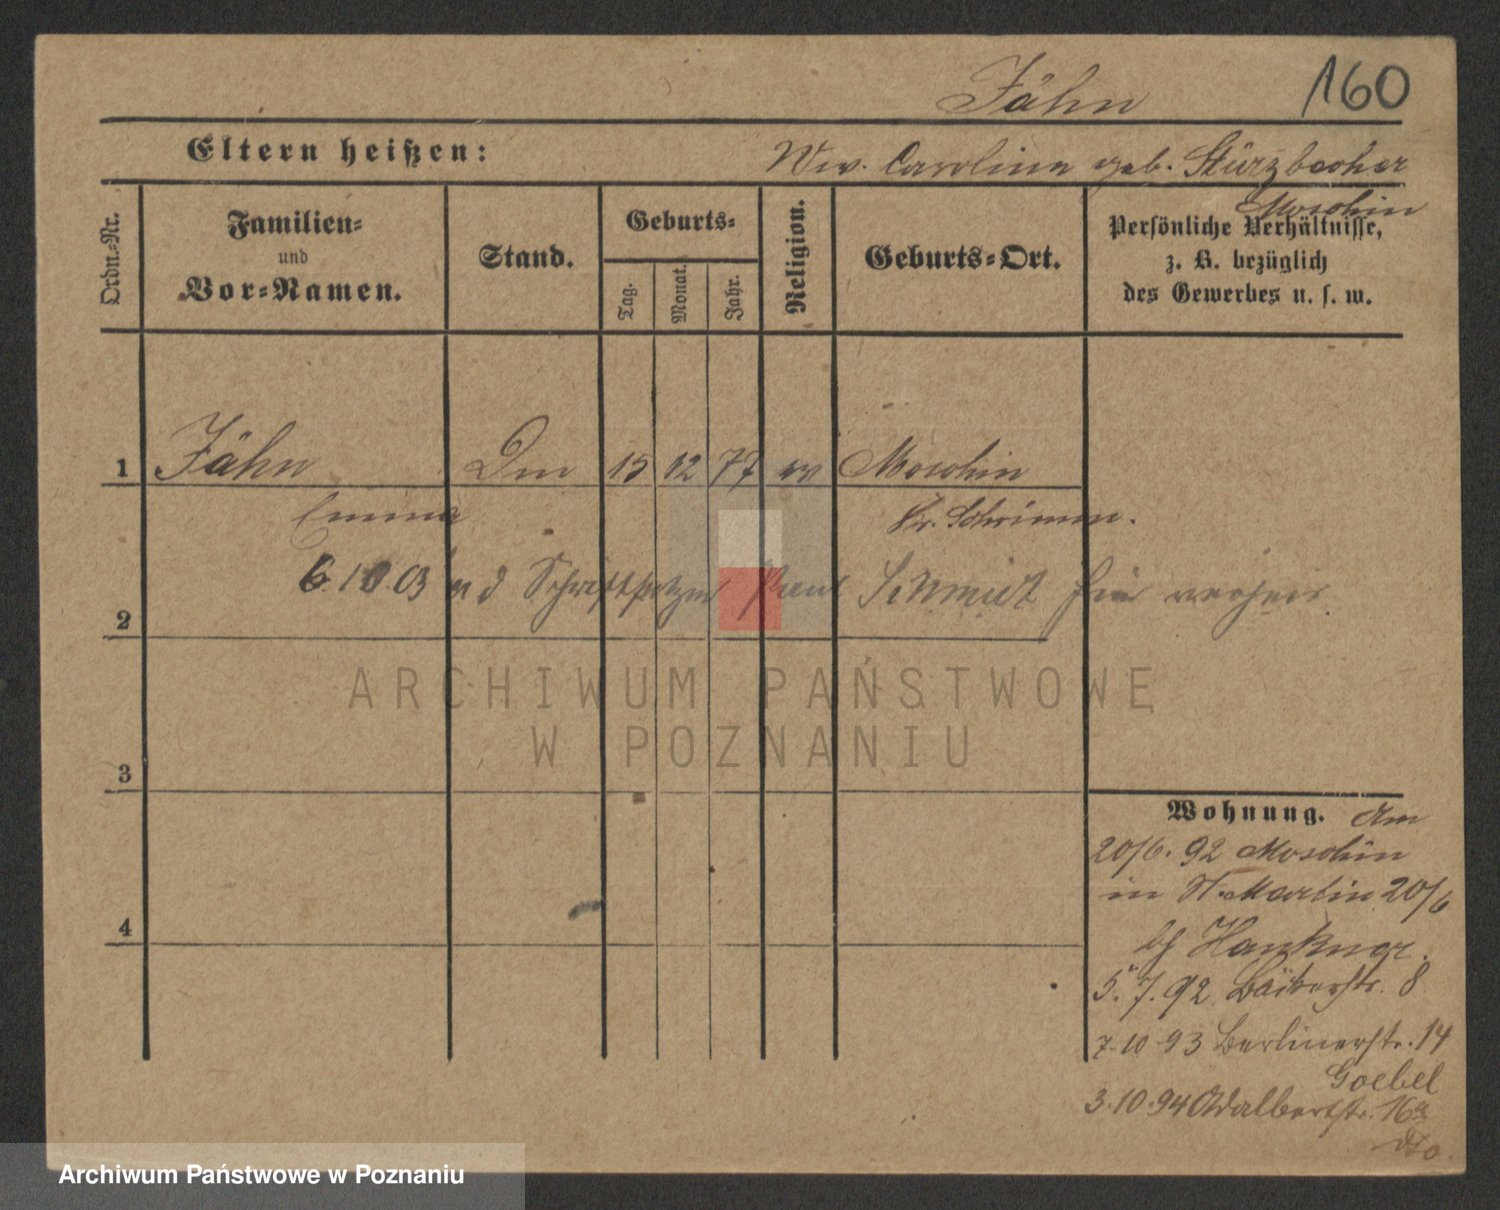 Jähn 160
Eltern heißen: Wwe. Carolina geb. Stürzbecher
Moschin
Ordn.=Nr.
Familien=
und
Vor=Namen.
Stand.
Geburts=
Tag.
Monat.
Jahr.
Religion.
Geburts=Ort.
Persönliche Verhältnisse,
z. B. bezüglich
des Gewerbes u. s. w.
1 Jähn Dm 15 12 77 ev Moschin
Emma Kr. Schrimm.
6.10.03 m d Schriftsetzer Paul Schmidt hier verheir.
2
ARCHIWUM PAŃSTWOWE
W POZNANIU
3
Wohnung. Am
20/6. 92 Moschin
in St. Martin 20/6
5.7.92 Bäckerstr. 8
7.10.93 Berlinerstr. 14
Goebel
3.10.94 Adalbertstr. 16a
dto
4
Archiwum Państwowe w Poznaniu